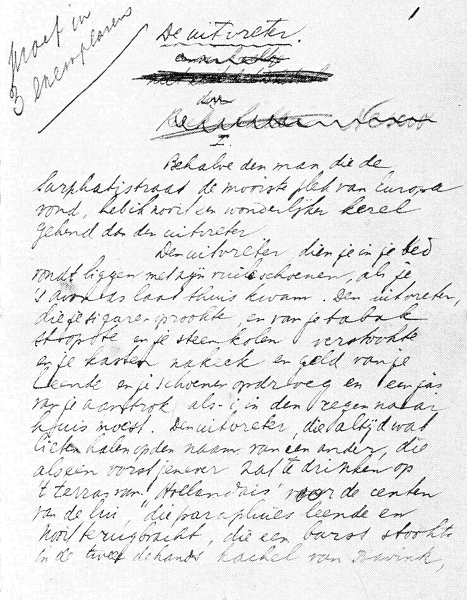 Proef in
3 exemplaren
1
De uitvreter.
door
I
Behalve den man die de
Sarphatistraat de mooiste plek van Europa
vond, heb ik nooit een wonderlijker kerel
gekend dan den uitvreter
Den uitvreter, dien je in je bed
vondt liggen met zijn vuile schoenen, als je
's avonds laat thuis kwam. Den uitvreter,
die je sigaren rookte, en van je tabak
stopte en je steenkolen verstookte
en je kasten nakeek en geld van je
leende en je schoenen opdroeg en een jas
van je aantrok als i in den regen naar
huis moest. Den uitvreter, die altijd wat
liet halen op den naam van een ander, die
als een vorst jenever zat te drinken op
't terras van "Hollandais" voor de centen
van de lui, die parapluies leende en
nooit terugbracht, die een barst stookte
in de tweedehands kachel van Bavink,